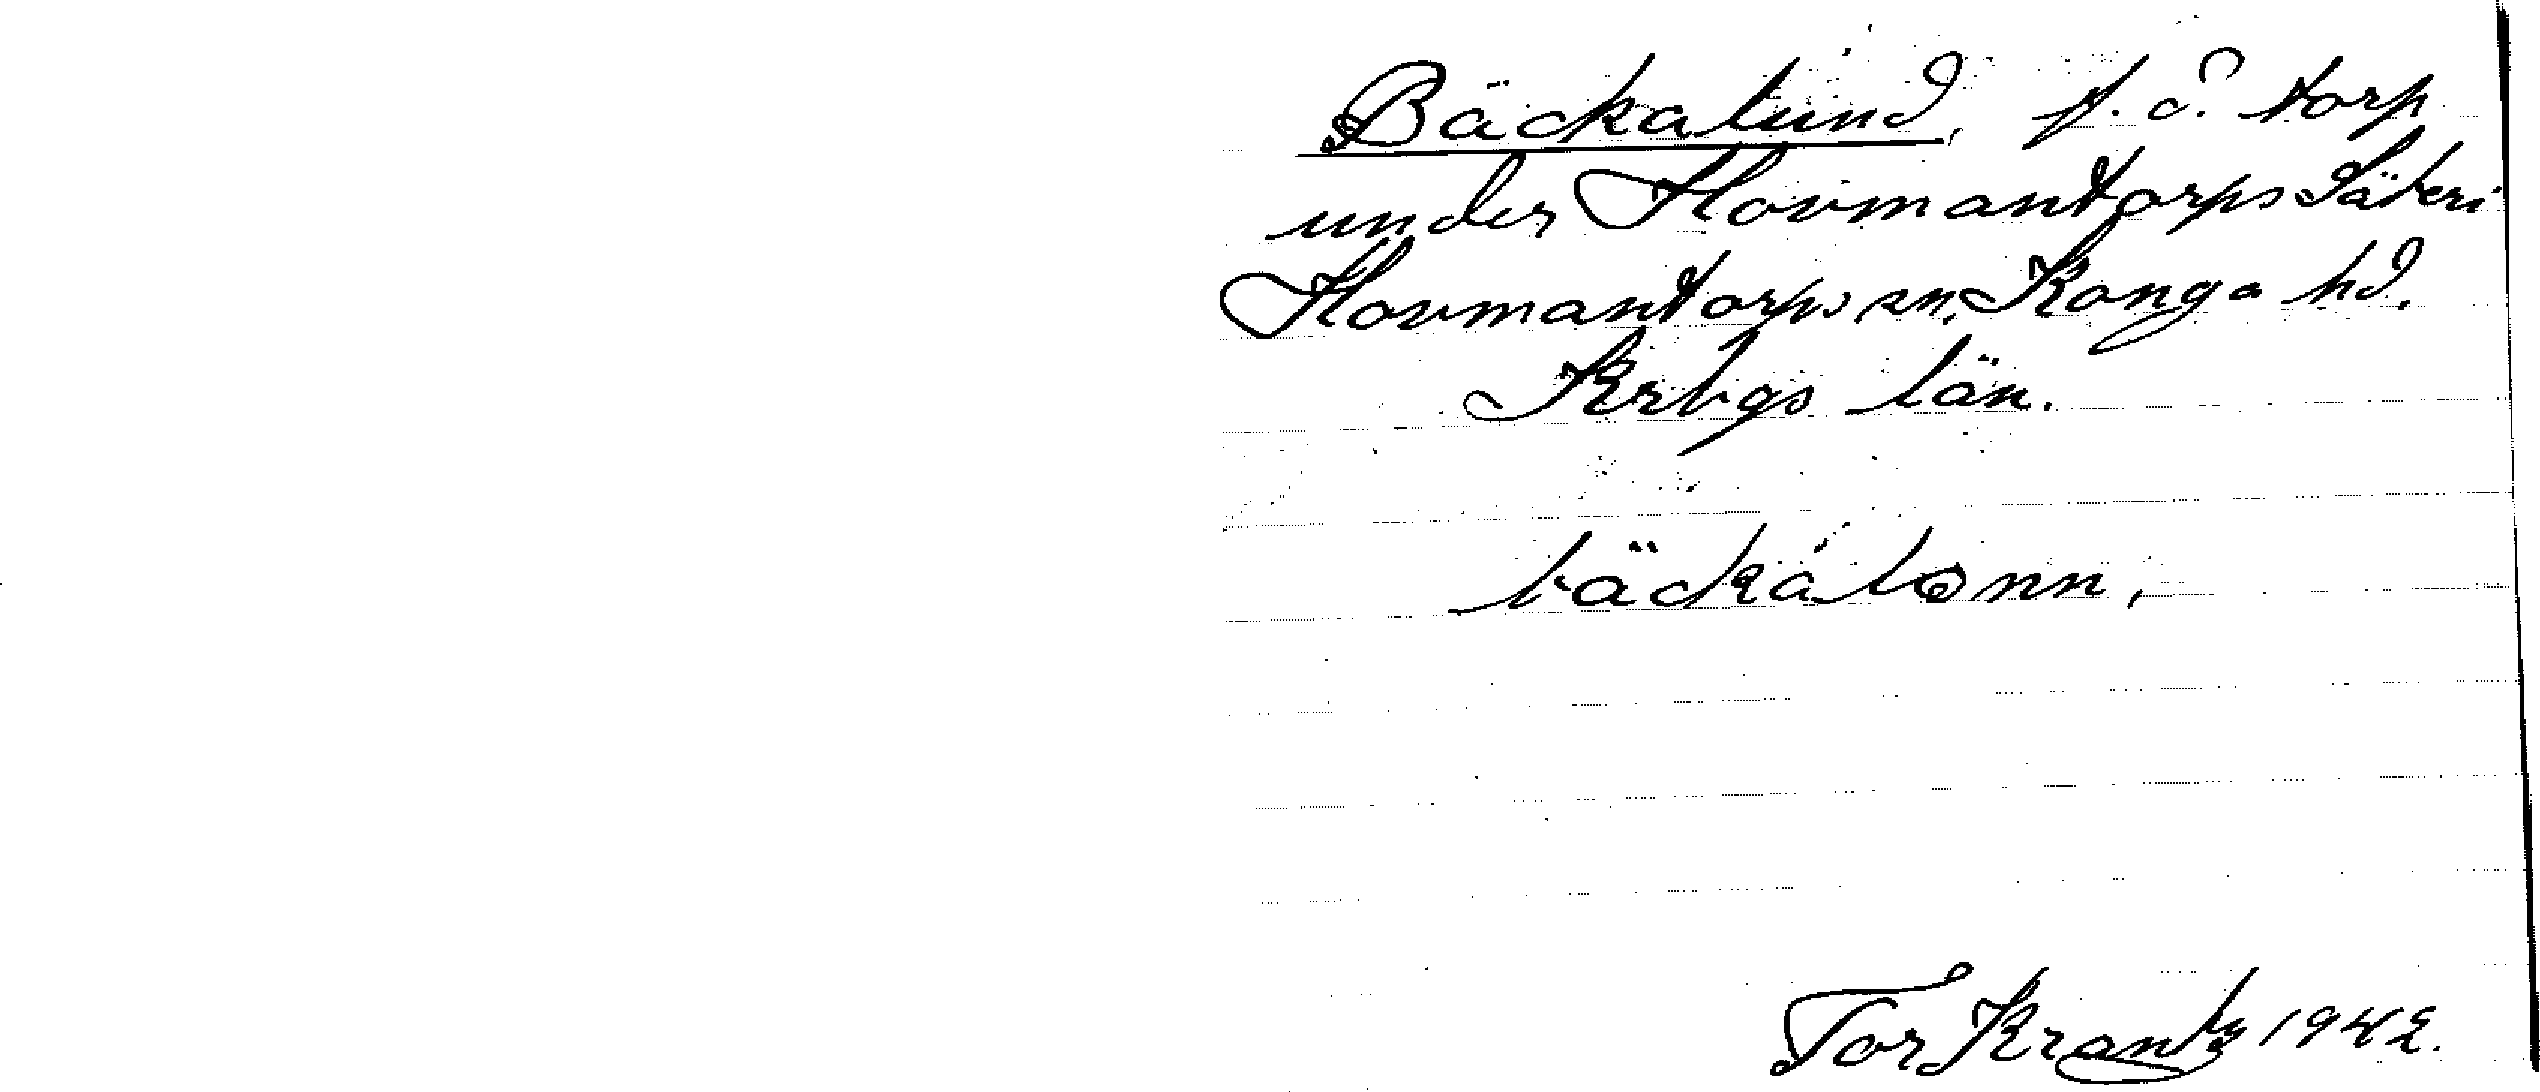 Bäckalund, f. d. torp
under Hovmantorps Säteri
Hovmantorps sn, Konga hd.
Krbgs län.
bäckalonn,
Tor Krantz 1942.